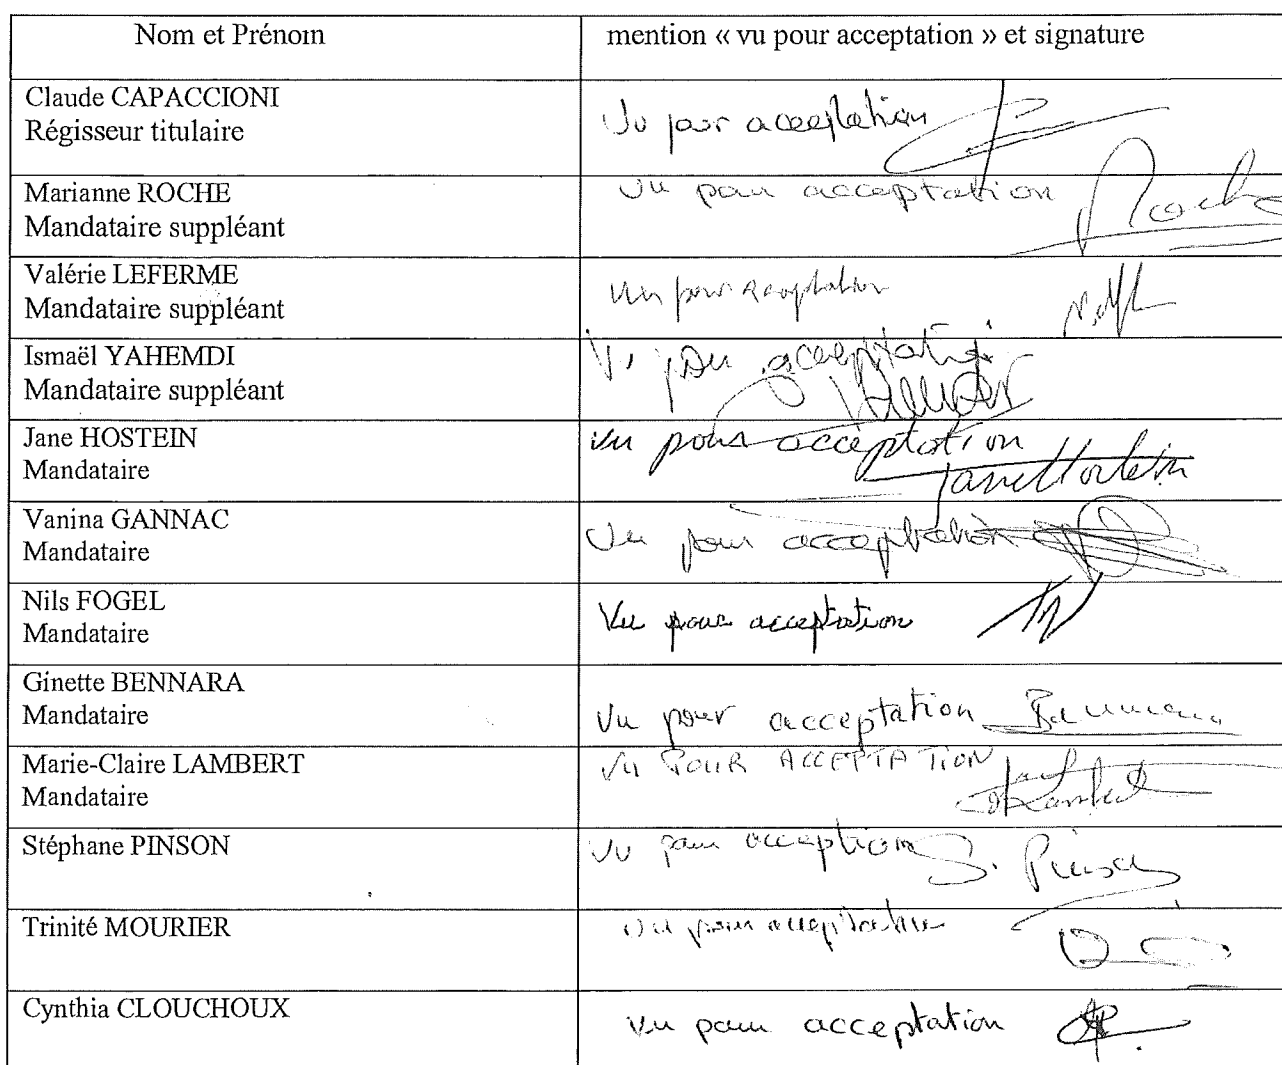 Nom et Prénom
mention « vu pour acceptation » et signature
Claude CAPACCIONI
Régisseur titulaire
Vu pour acceptation
Marianne ROCHE
Mandataire suppléant
Vu pour acceptation
Roche
Valérie LEFERME
Mandataire suppléant
Vu pour acceptation
Ismaël YAHEMDI
Mandataire suppléant
Vu pour acceptation
Jane HOSTEIN
Mandataire
Vu pour acceptation
Jane Hostein
Vanina GANNAC
Mandataire
Vu pour acceptation
Nils FOGEL
Mandataire
Vu pour acceptation
Ginette BENNARA
Mandataire
Vu pour acceptation
Marie-Claire LAMBERT
Mandataire
VU POUR ACCEPTATION
Lambert
Stéphane PINSON
Vu pour acception
S. Pinson
Trinité MOURIER
Vu pour acceptation
Cynthia CLOUCHOUX
Vu pour acceptation